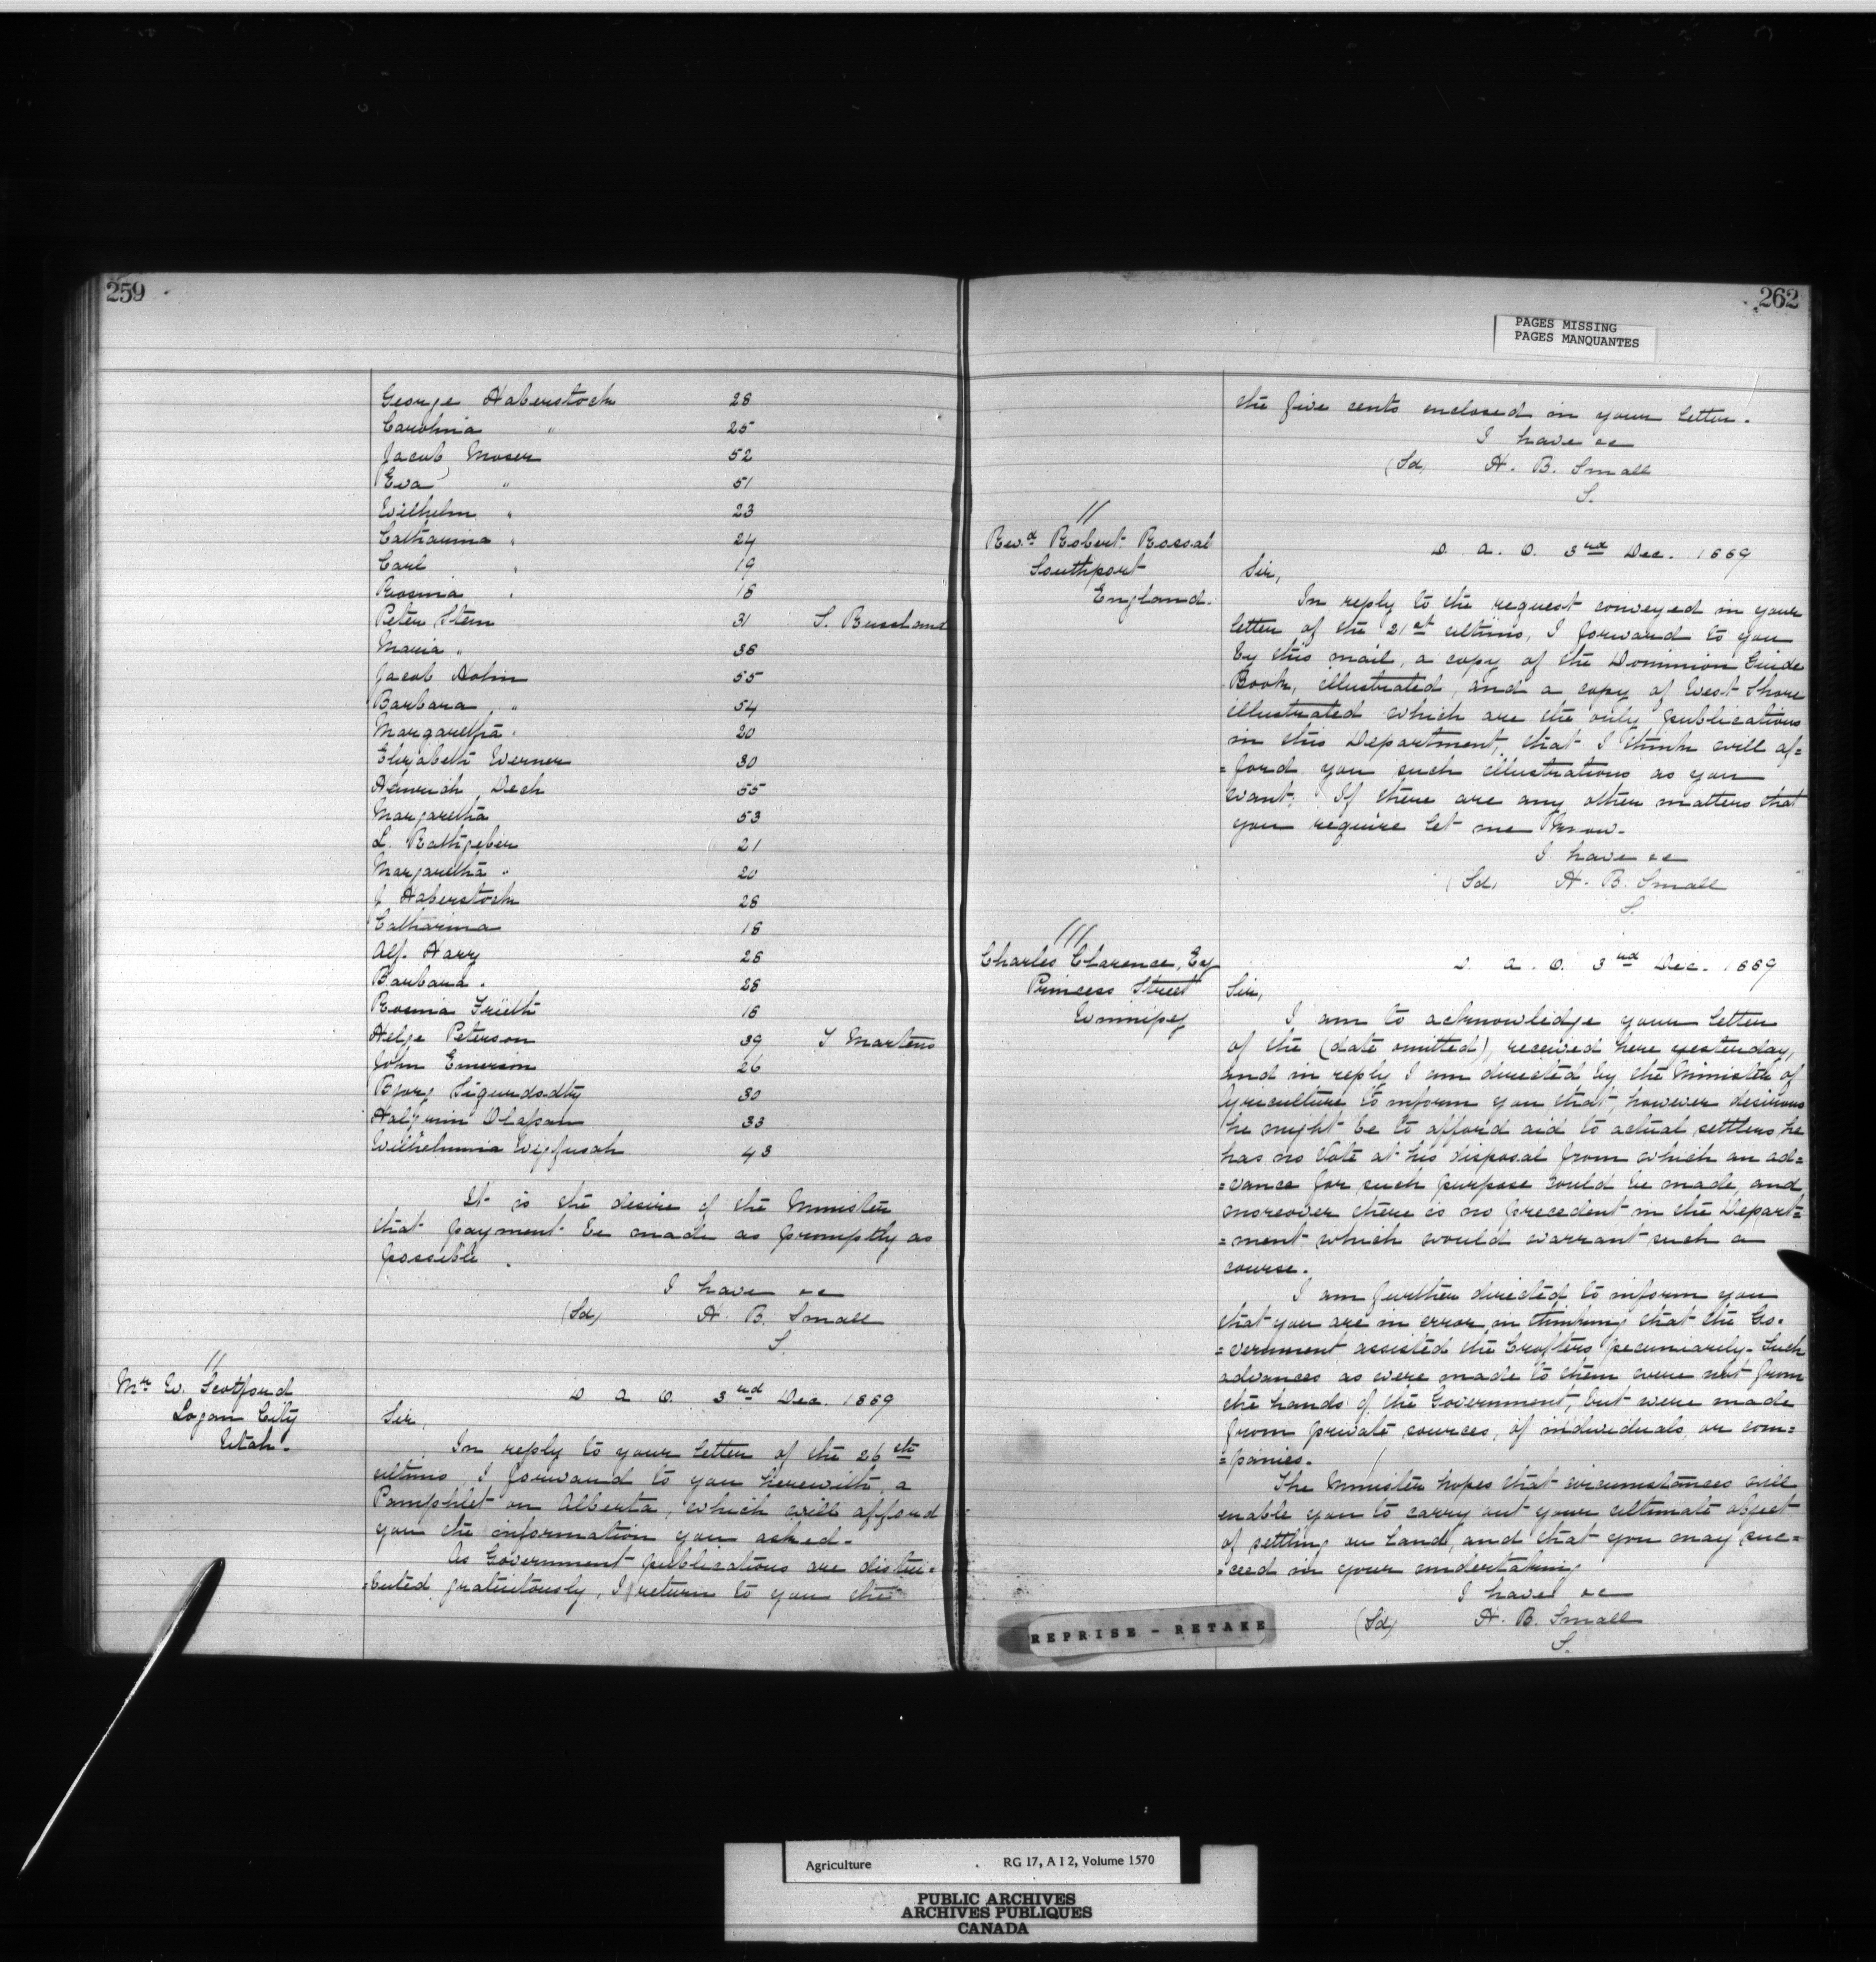 259
George Haberstock 28
Carolina " 25
Jacob Moser 52
Eva " 51
Wilhelm " 23
Catharina " 24
Carl " 19
Rosina " 18
Peter Stem 31 S. Bussland
Maria " 36
Jacob Hohn 55
Barbara " 54
Margaretha " 20
Elizabeth Werner 30
Heinrich Dech 55
Margaretha 53
L. Rathgeber 21
Margaretha " 20
J Haberstock 28
Catharina 18
Alf. Harry 28
Barbara " 28
Rosina Frieth 16
Helge Peterson 39 T Martens
John Emerson 26
Bjorg Sigurdsdty 30
Halgrim Olafson 33
Wilhelmina Vigfusdh 43
It is the desire of the Minister
that payment be made as promptly as
possible.
I have &c
(Sd) H. B. Small
S.
//
Mr W. Scotford
Logan City
Utah.
D. A. O. 3rd Dec. 1889
Sir,
In reply to your letter of the 26th
ultimo, I forward to you herewith, a
Pamphlet on Alberta, which will afford
you the information you asked.
As Government publications are distri=
=buted gratuitously, I return to you the
262
PAGES MISSING
PAGES MANQUANTES
the five cents enclosed in your letter.
I have &c
(Sd) H. B. Small
S.
//
Revd Robert Rossal
Southport
England.
D. A. O. 3rd Dec. 1889
Sir,
In reply to the request conveyed in your
letter of the 21st ultimo, I forward to you
by this mail, a copy of the Dominion Guide
Book, illustrated, and a copy of West Shore
illustrated which are the only publications
in this Department, that I think will af=
=ford you such illustrations as you
want. If there are any other matters that
you require let me know.
I have &c
(Sd) H. B. Small
S.
///
Charles Clarence, Esq
Princess Street
Winnipeg
D. A. O. 3rd Dec. 1889
Sir,
I am to acknowledge your letter
of the (date omitted), received here yesterday,
and in reply I am directed by the Minister of
Agriculture to inform you that, however desirous
he might be to afford aid to actual settlers, he
has no Vote at his disposal from which an ad=
=vance for such purpose could be made, and
moreover there is no precedent in the Depart=
=ment which would warrant such a
course.
I am further directed to inform you
that you are in error in thinking that the Go=
=vernment assisted the Crofters pecuniarily. Such
advances as were made to them were not from
the hands of the Government, but were made
from private sources, of individuals, or com=
=panies.
The Minister hopes that circumstances will
enable you to carry out your ultimate object
of settling on land, and that you may suc=
=ceed in your undertaking
I have &c
(Sd) H. B. Small
S.
REPRISE - RETAKE
Agriculture RG 17, A I 2, Volume 1570
PUBLIC ARCHIVES
ARCHIVES PUBLIQUES
CANADA